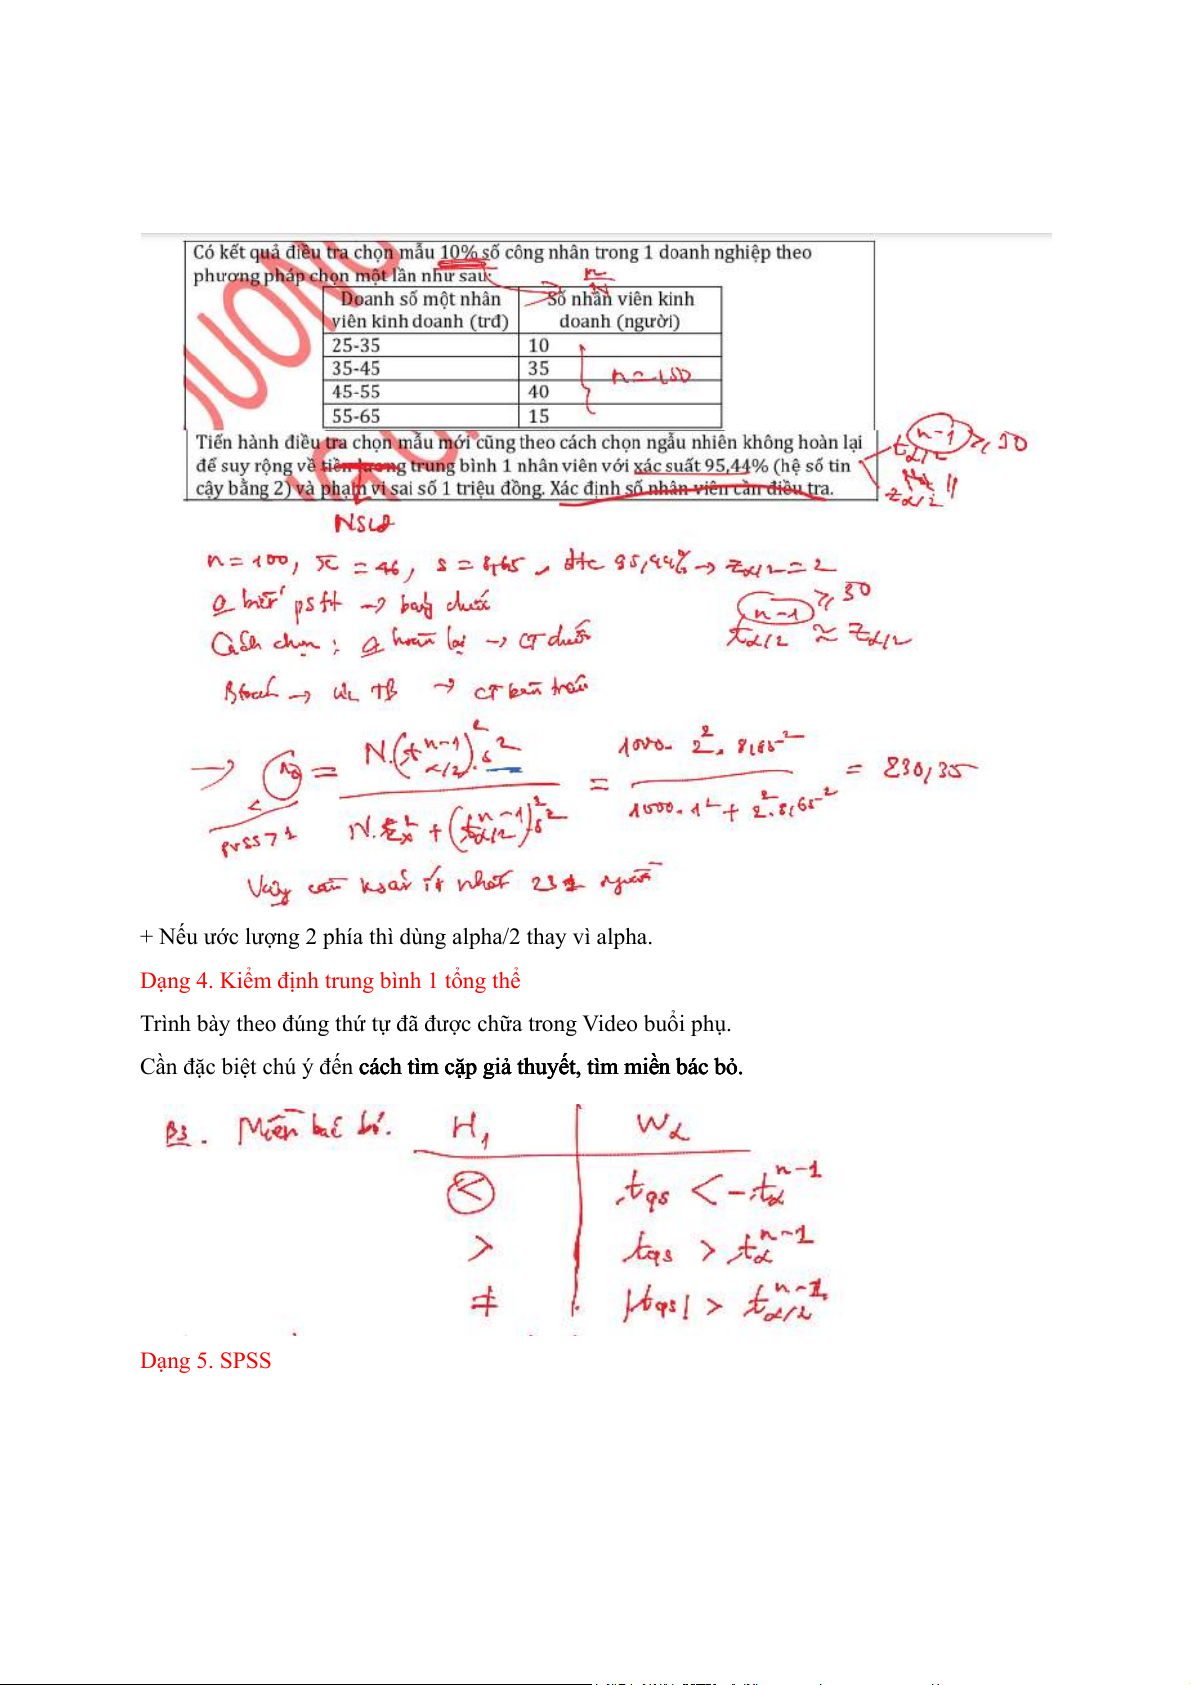 Có kết quả điều tra chọn mẫu 10% số công nhân trong 1 doanh nghiệp theo
phương pháp chọn một lần như sau:
n/N
Doanh số một nhân viên kinh doanh (trđ) Số nhân viên kinh doanh (người)
25-35 10
35-45 35
45-55 40
55-65 15
n = 100
Tiến hành điều tra chọn mẫu mới cũng theo cách chọn ngẫu nhiên không hoàn lại
để suy rộng về tiền lương trung bình 1 nhân viên với xác suất 95,44% (hệ số tin
cậy bằng 2) và phạm vi sai số 1 triệu đồng. Xác định số nhân viên cần điều tra.
t α/2 n-1 ≥ 30
z α/2
NSLĐ
n = 100, x̄ = 46, s = 8,65, đtc 95,44% → z α/2 = 2
n-1 ≥ 30
t α/2 ≈ z α/2
Cách chọn: hoàn lại → CT dưới
→ ƯL TB → CT bên trên
→ n = N.(t α/2 n-1)².s² / N.ε x² + (t α/2 n-1)².s² = 1000. 2². 8,65² / 1000.1² + 2².8,65² = 230,35
Vậy cần ksát ít nhất 231 người
+ Nếu ước lượng 2 phía thì dùng alpha/2 thay vì alpha.
Dạng 4. Kiểm định trung bình 1 tổng thể
Trình bày theo đúng thứ tự đã được chữa trong Video buổi phụ.
Cần đặc biệt chú ý đến cách tìm cặp giả thuyết, tìm miền bác bỏ.
B3. Miền bác bỏ. H₁ Wα
< tqs < -tα n-1
> tqs > tα n-1
≠ |tqs| > t α/2 n-1
Dạng 5. SPSS